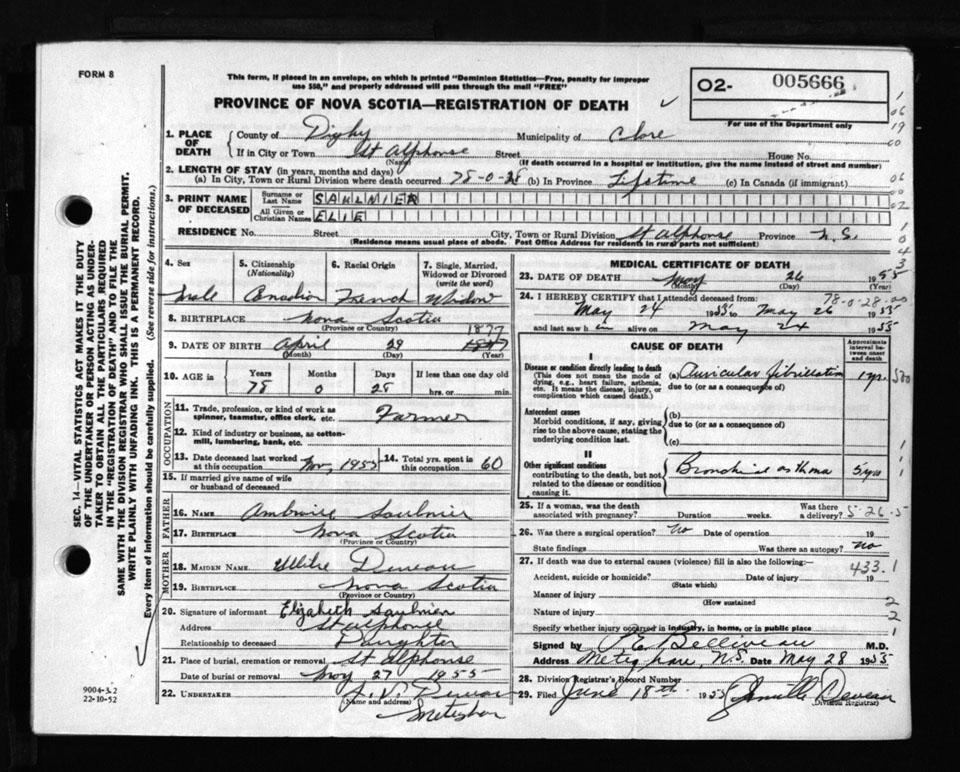 FORM 8
This form, if placed in an envelope, on which is printed "Dominion Statistics—Free, penalty for improper
use $50," and properly addressed will pass through the mail "FREE"
PROVINCE OF NOVA SCOTIA—REGISTRATION OF DEATH
02- 005666
For use of the Department only
1. PLACE OF DEATH
County of Digby Municipality of Clare
If in City or Town St Alphonse Street House No.
(Name) (If death occurred in a hospital or institution, give the name instead of street and number)
2. LENGTH OF STAY (in years, months and days)
(a) In City, Town or Rural Division where death occurred 78-0-28 (b) In Province Lifetime (c) In Canada (if immigrant)
3. PRINT NAME OF DECEASED
Surname or Last Name SAULNIER
All Given or Christian Names ELIE
RESIDENCE No. Street City, Town or Rural Division St Alphonse Province N.S.
(Residence means usual place of abode. Post Office Address for residents in rural parts not sufficient)
4. Sex
5. Citizenship (Nationality)
6. Racial Origin
7. Single, Married, Widowed or Divorced (write the word)
Male Canadian French Widow
8. BIRTHPLACE Nova Scotia
(Province or Country)
1877
9. DATE OF BIRTH April 29
(Month) (Day) (Year)
10. AGE in Years Months Days If less than one day
78 0 28 hrs. or min.
OCCUPATION
11. Trade, profession, or kind of work as spinner, teamster, office clerk, etc. Farmer
12. Kind of industry or business, as cotton-mill, lumbering, bank, etc.
13. Date deceased last worked at this occupation Nov, 1953 14. Total yrs. spent in this occupation 60
15. If married give name of wife or husband of deceased
FATHER
16. NAME Ambroise Saulnier
17. BIRTHPLACE Nova Scotia
(Province or Country)
MOTHER
18. MAIDEN NAME Deveau
19. BIRTHPLACE Nova Scotia
(Province or Country)
20. Signature of informant Elizabeth Saulnier
Address St Alphonse
Relationship to deceased Daughter
21. Place of burial, cremation or removal St Alphonse
Date of burial or removal May 27 1955
22. UNDERTAKER Deveau
(Name and address)
Meteghan
MEDICAL CERTIFICATE OF DEATH
23. DATE OF DEATH May 26 1955
(Month) (Day) (Year)
24. I HEREBY CERTIFY that I attended deceased from: 78-0-28-00
May 24 1955 to May 26 1955
and last saw him alive on May 24 1955
CAUSE OF DEATH
Approximate interval between onset and death
I
Disease or condition directly leading to death
(This does not mean the mode of dying, e.g., heart failure, asthenia, etc. It means the disease, injury, or complication which caused death.)
(a) Auricular fibrillation 1 yr.
due to (or as a consequence of)
Antecedent causes
Morbid conditions, if any, giving rise to the above cause, stating the underlying condition last.
(b)
due to (or as a consequence of)
(c)
II
Other significant conditions
contributing to the death, but not related to the disease or condition causing it.
Bronchial asthma 5 yrs
25. If a woman, was the death associated with pregnancy? Duration weeks. Was there a delivery? 5-26-5
26. Was there a surgical operation? no Date of operation 19
State findings Was there an autopsy? no
27. If death was due to external causes (violence) fill in also the following: 433.1
Accident, suicide or homicide? Date of injury 19
(State which)
Manner of injury
(How sustained)
Nature of injury
Specify whether injury occurred in industry, in home, or in public place
Signed by Belliveau M.D.
Address Meteghan, N.S. Date May 28 1955
28. Division Registrar's Record Number
29. Filed June 18th 1955 Camille Deveau
(Division Registrar)
SEC. 14—VITAL STATISTICS ACT MAKES IT THE DUTY
OF THE UNDERTAKER OR PERSON ACTING AS UNDER-
TAKER TO OBTAIN ALL THE PARTICULARS REQUIRED
IN THE "REGISTRATION OF DEATH" AND TO FILE THE
SAME WITH THE DIVISION REGISTRAR WHO SHALL ISSUE THE BURIAL PERMIT.
WRITE PLAINLY WITH UNFADING INK. THIS IS A PERMANENT RECORD.
Every item of information should be carefully supplied. (See reverse side for instructions.)
9004-3.2
22-10-52